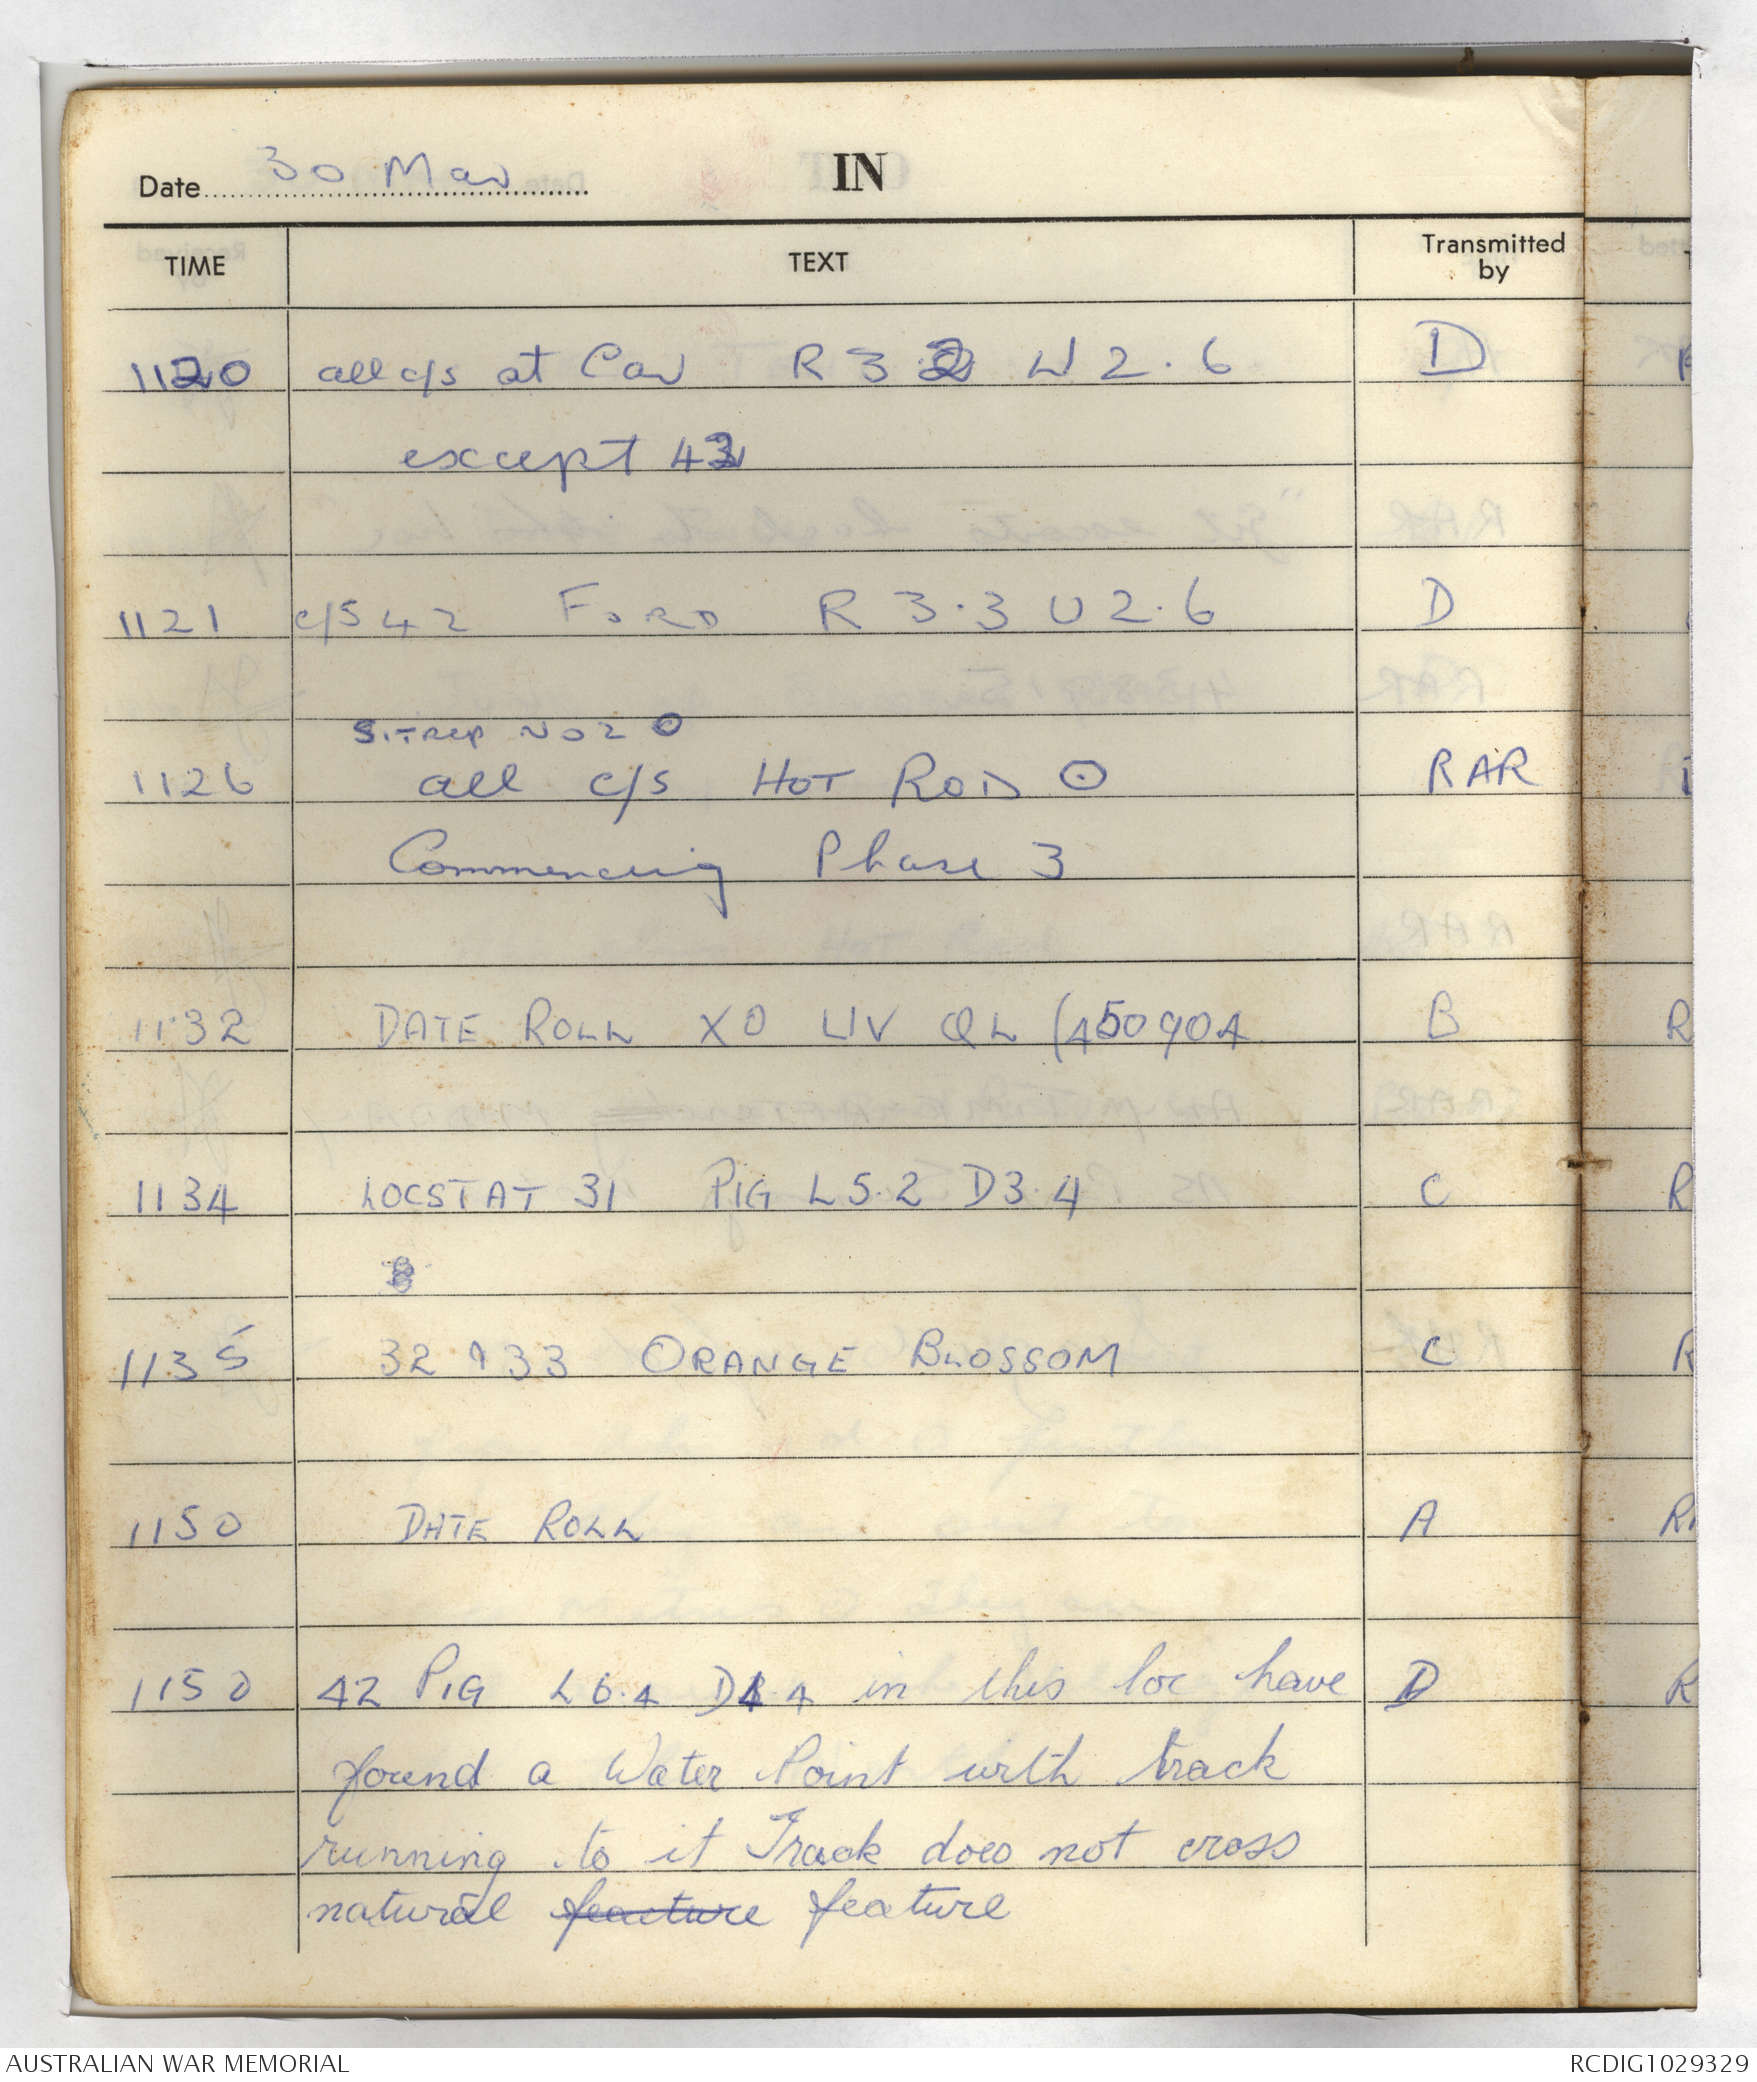 Date 30 Mar IN
TIME TEXT Transmitted by
1120 all c/s at Car R 3 2 U 2.6 D
except 42
1121 c/s 42 FORD R 3.3 U 2.6 D
SITREP NO 20
1126 all c/s HOT ROD O RAR
Commencing Phase 3
1132 DATE ROLL XO LIV QL (450904 B
1134 LOCSTAT 31 PIG L 5.2 D 3.4 C
1135 32 & 33 ORANGE BLOSSOM C
1150 DATE ROLL A
1150 42 PIG L 6.4 D 4 in this loc have D
found a Water Point with track
running to it Track does not cross
natural feature feature
AUSTRALIAN WAR MEMORIAL RCDIG1029329